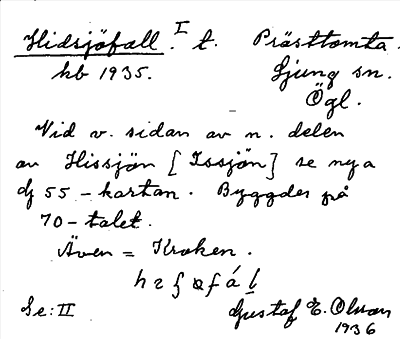 Hidsjöfall. I t. Prästtomta.
hb 1935. Ljung sn.
Ögl.
Vid v. sidan av n. delen
av Hissjön [Issjön] se nya
dj 55-kartan. Byggdes på
70-talet.
Även = Kroken.
Se: II Gustaf E. Olsson
1936